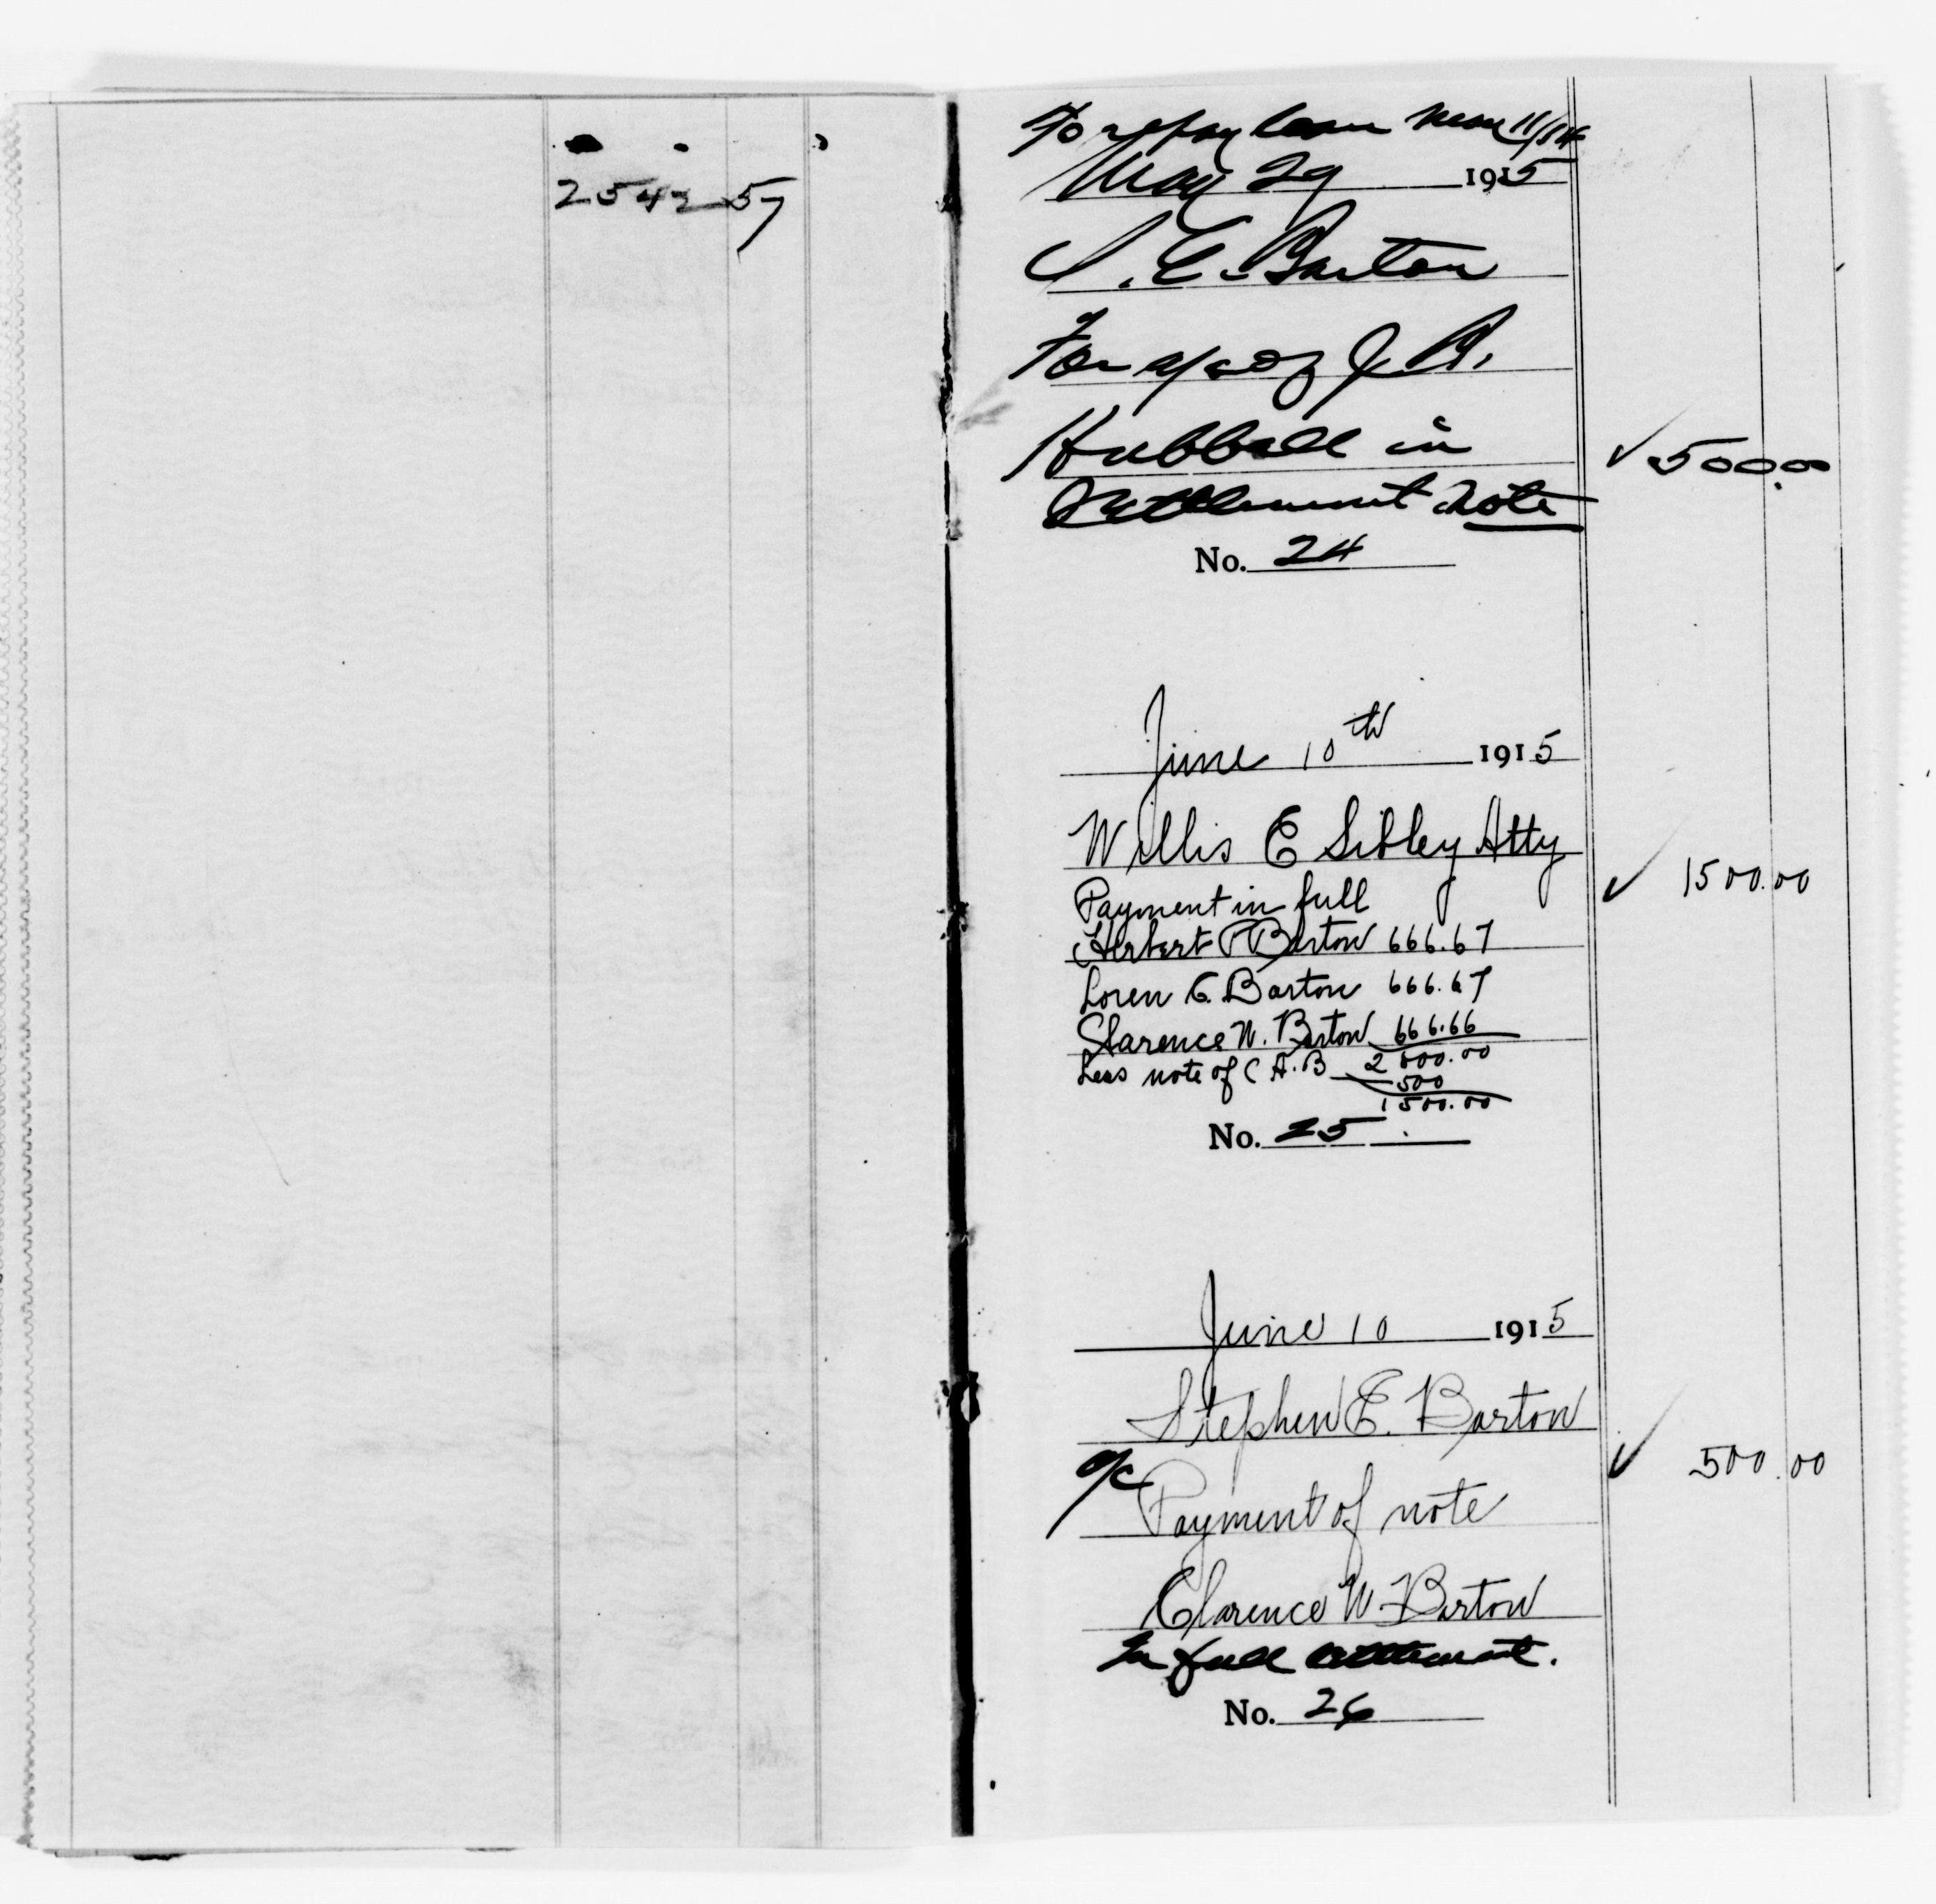 2542 57
To repay loan Mar 11/14
May 29 1915
S. E. Barton
For a/c of J. B.
Hubbell in
Settlement note
✓ 500.00
No. 24
June 10th 1915
Willis E Sibley Atty
✓ 1500.00
Payment in full
Herbert P Barton 666.67
Loren G. Barton 666.67
Clarence W. Barton 666.66
2000.00
Less note of C A. B 500
1500.00
No. 25
June 10 1915
Stephen E. Barton
✓ 500.00
a/c
Payment of note
Clarence W. Barton
In full settlement.
No. 26